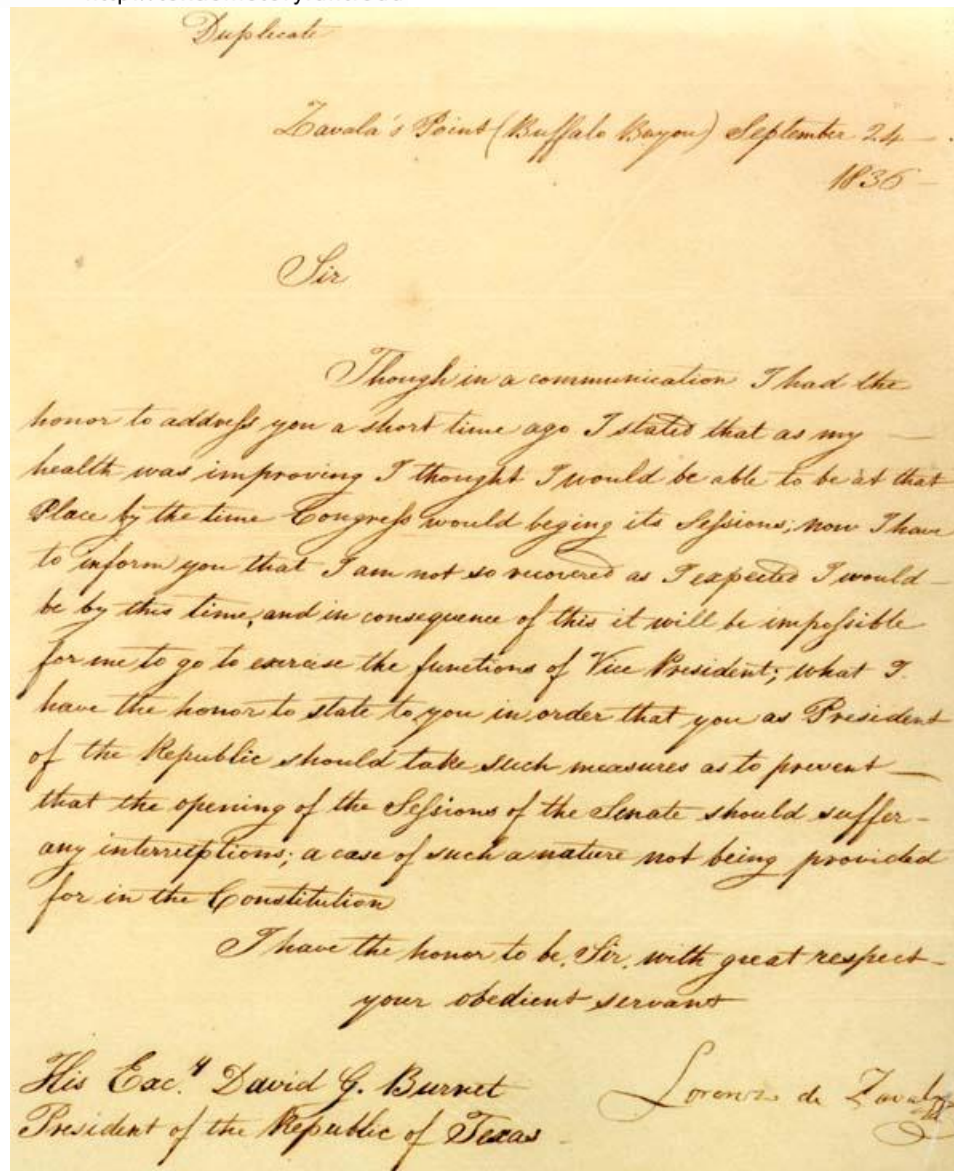 Duplicate
Zavala's Point (Buffalo Bayou) September 24
1836
Sir
Though in a communication I had the
honor to address you a short time ago I stated that as my
health was improving I thought I would be able to be at that
Place by the time Congress would beging its Sessions; now I have
to inform you that I am not so recovered as I expected I would
be by this time, and in consequence of this it will be impossible
for me to go to exercise the functions of Vice President; what I
have the honor to state to you in order that you as President
of the Republic should take such measures as to prevent
that the opening of the Sessions of the Senate should suffer
any interruptions; a case of such a nature not being provided
for in the Constitution
I have the honor to be, Sir, with great respect
your obedient servant
His Exc.y David G. Burnet
President of the Republic of Texas
Lorenzo de Zavala